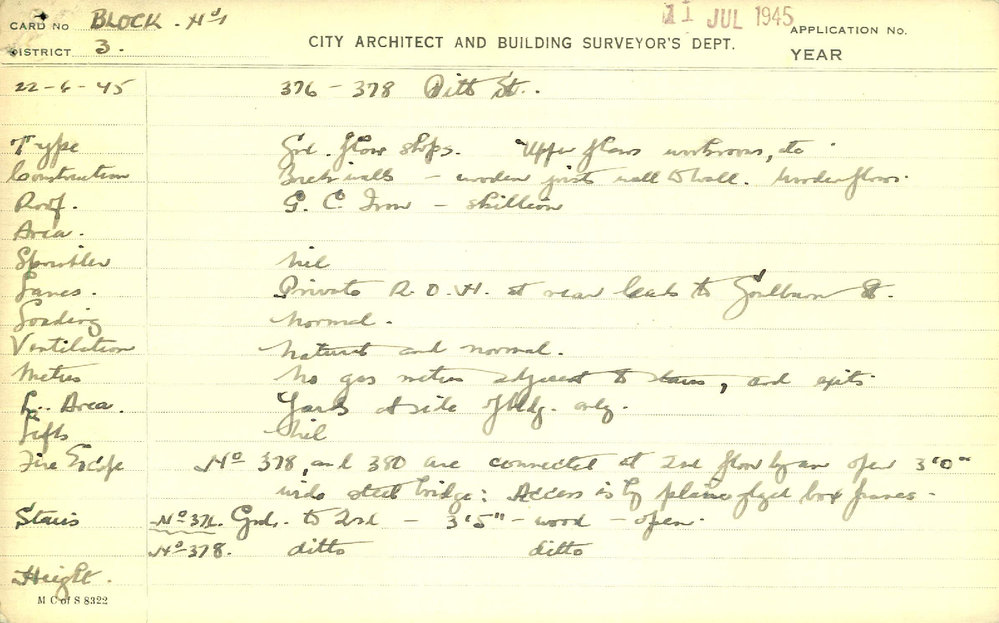 CARD No BLOCK. No 1
11 JUL 1945
APPLICATION No.
DISTRICT 3.
CITY ARCHITECT AND BUILDING SURVEYOR'S DEPT.
YEAR
22-6-45 376 - 378 Pitt St..
Type Grd. floor shops. Upper floors workrooms, etc.
Construction Brick walls - wooden joists wall to wall. Wooden floors.
Roof. G. C. Iron - skillion
Area.
Sprinkler Nil
Lanes. Private R.O.W. at rear leads to Goulburn St.
Loading Normal.
Ventilation Natural and normal.
Metres No gas metres adjacent to stairs, and exits.
L. Area. Yards at side of bldg. only.
Lifts Nil
Fire Escape No 378, and 380 are connected at 2nd floor by an open 3'0"
wide steel bridge: Access is by plain glazed box frames.
Stairs No 376. Grd. to 2nd - 3'5" - wood - open.
No 378. ditto ditto
Height.
M C of S 8322